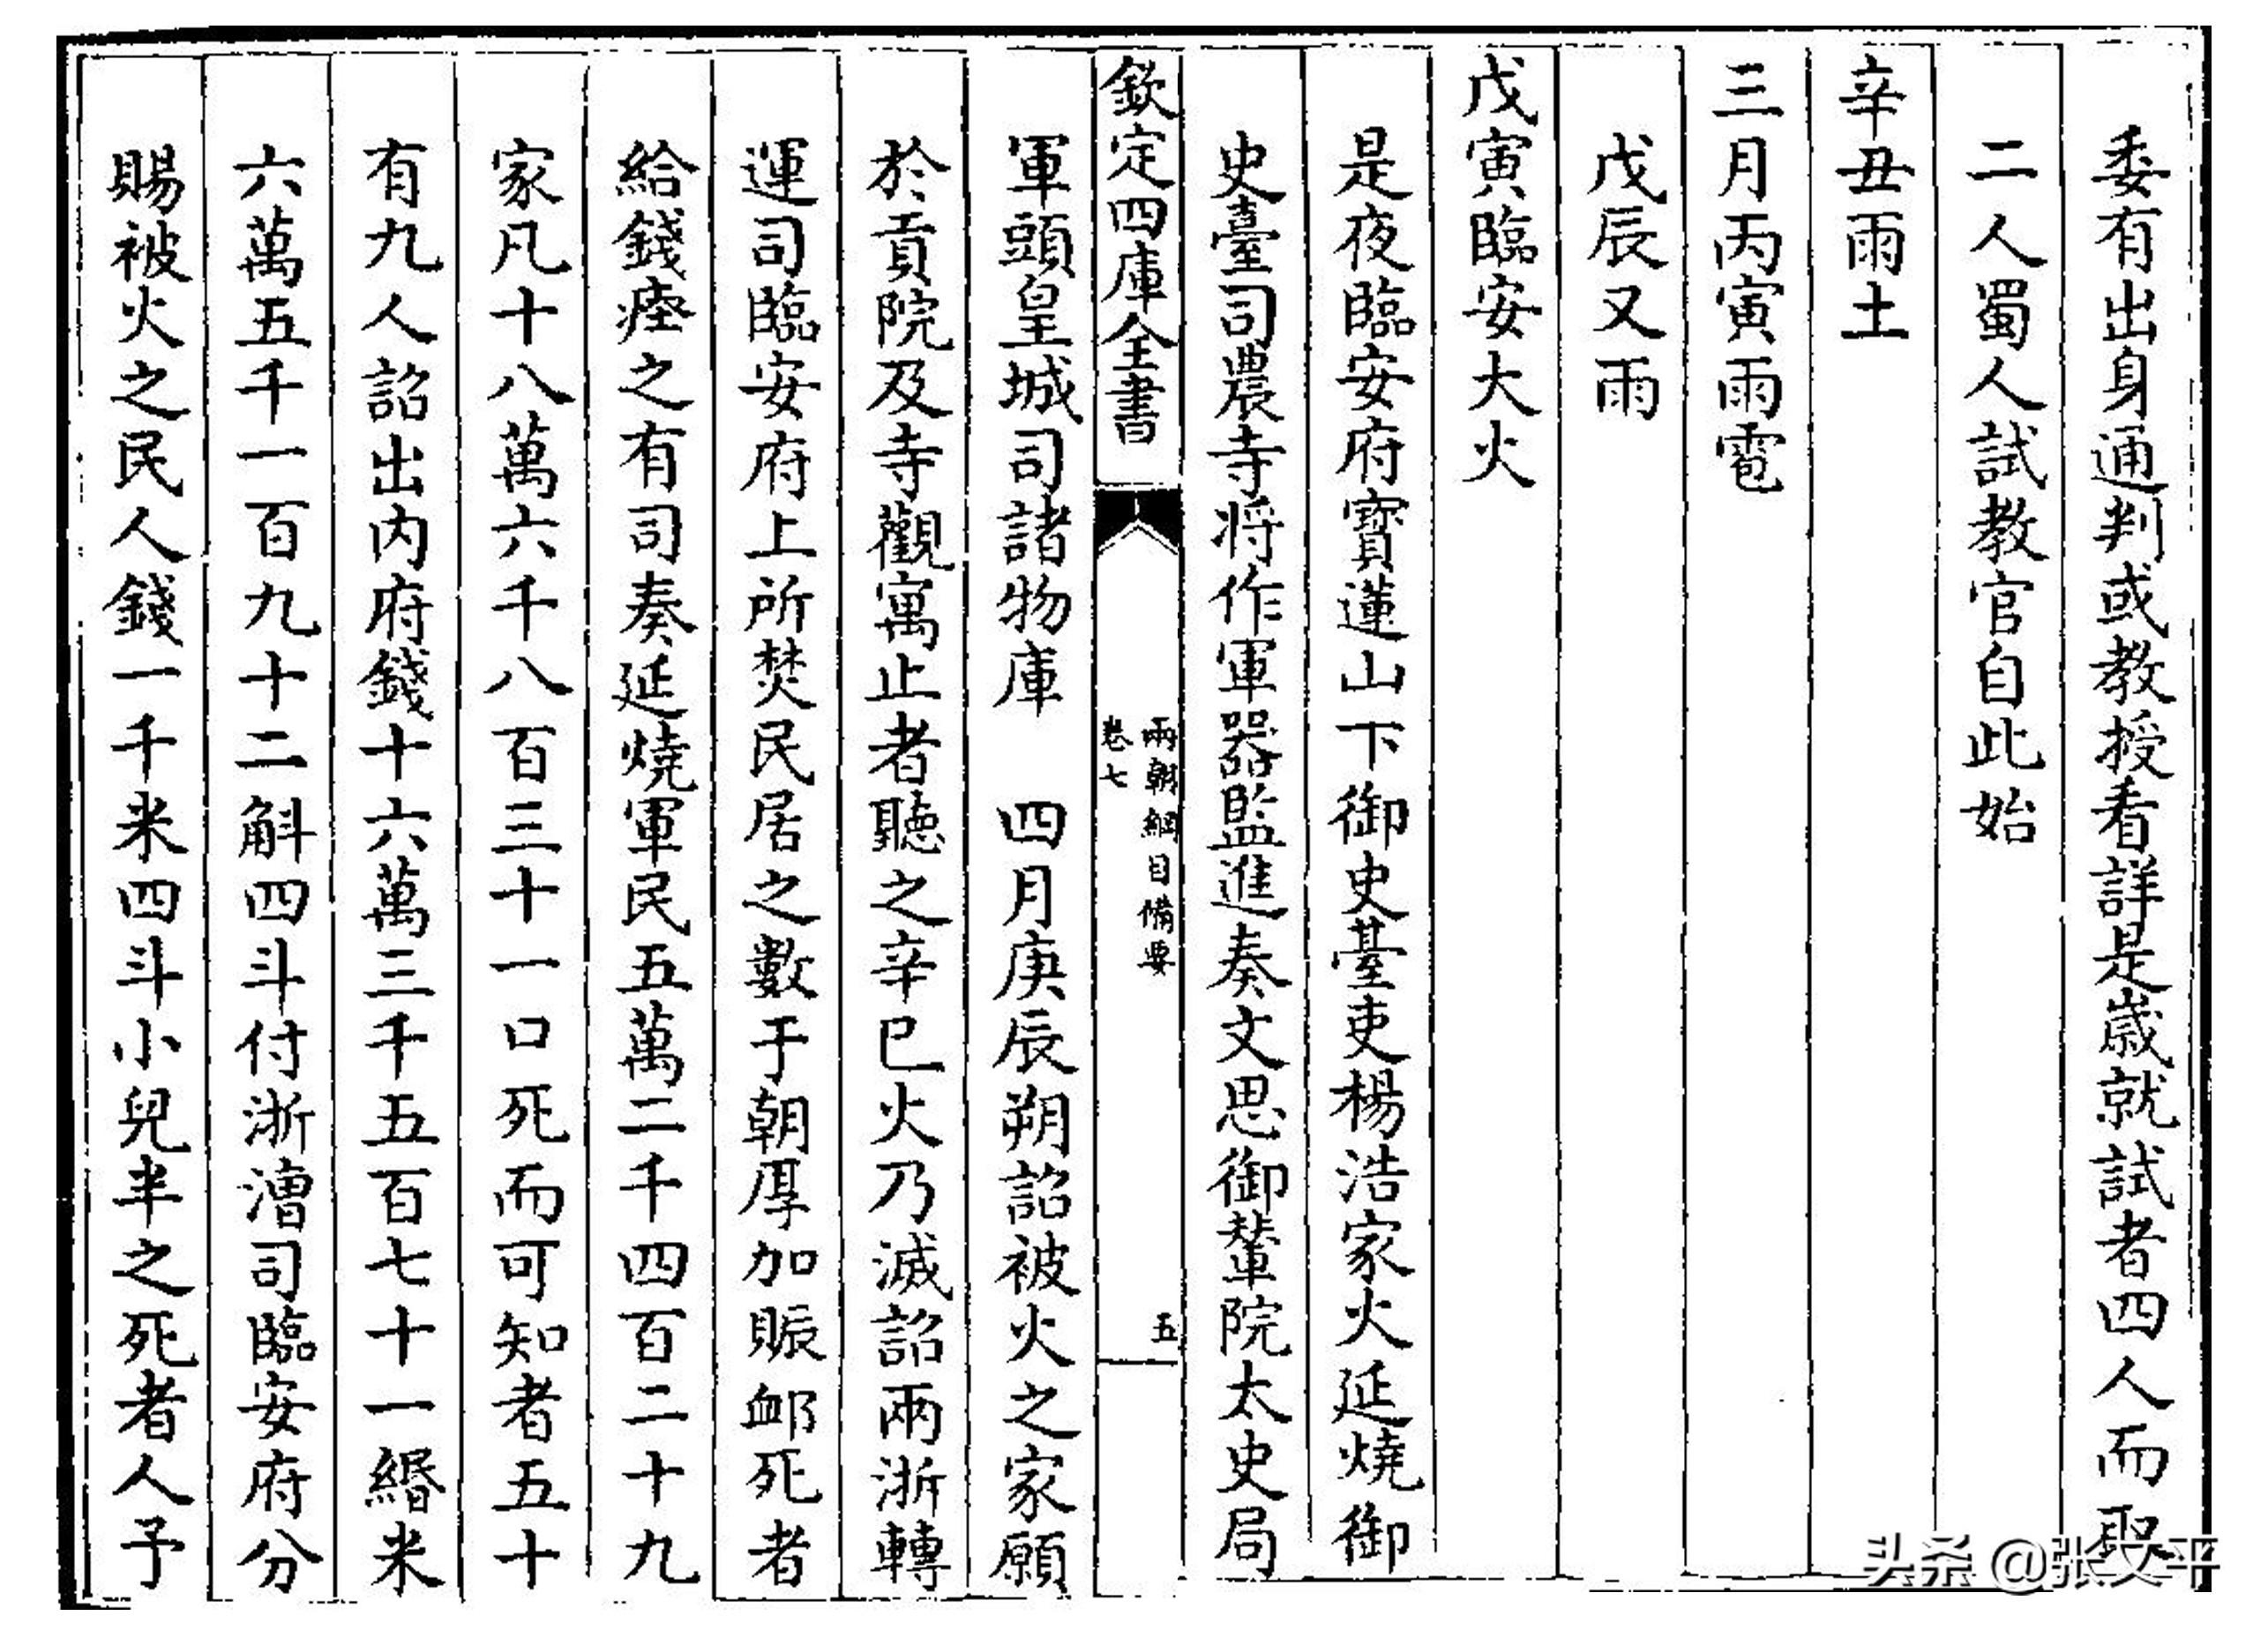 委有出身通判或教授看詳是歲就試者四人而取
二人蜀人試教官自此始
辛丑雨土
三月丙寅雨雹
戊辰又雨
戊寅臨安大火
是夜臨安府寶蓮山下御史臺吏楊浩家火延燒御
史臺司農寺將作軍器監進奏文思御輦院太史局
欽定四庫全書
兩朝綱目備要
卷七
五
軍頭皇城司諸物庫 四月庚辰朔詔被火之家願
於貢院及寺觀寓止者聽之辛巳火乃滅詔兩浙轉
運司臨安府上所焚民居之數于朝厚加賑䘏死者
給錢瘞之有司奏延燒軍民五萬二千四百二十九
家凡十八萬六千八百三十一口死而可知者五十
有九人詔出内府錢十六萬三千五百七十一緡米
六萬五千一百九十二斛四斗付浙漕司臨安府分
賜被火之民人錢一千米四斗小兒半之死者人予
头条 @张文平